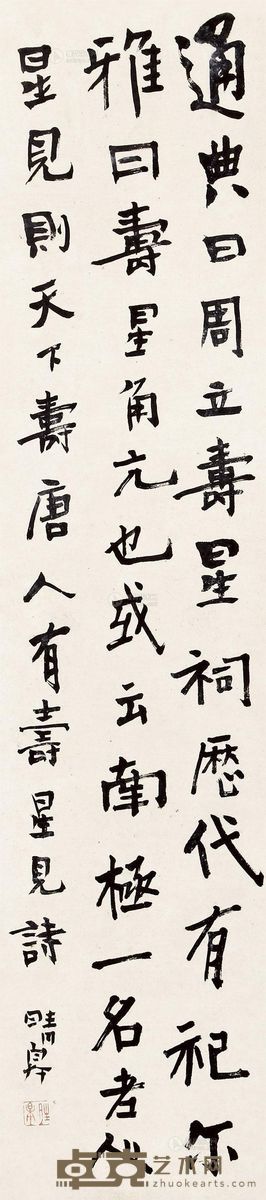 通典曰周立壽星祠歷代有祀尔
雅曰壽星角亢也或云南極一名老人
星見則天下壽唐人有壽星見詩
晴皋
卓克艺术网
zhuokearts.com